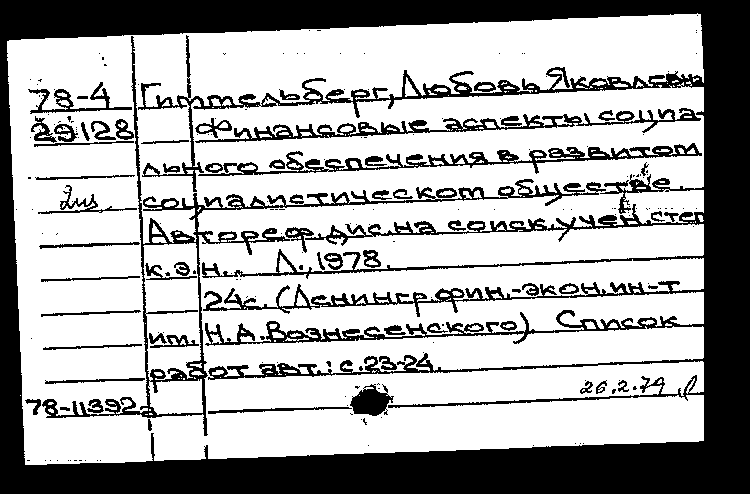 78-4 Гиттельберг, Любовь Яковлевна
29128 Финансовые аспекты социа-
льного обеспечения в развитом
социалистическом обществе.
Автореф. дис. на соиск. учен. степ
к.э.н.. Л., 1978.
24с. (Ленингр.фин.-экон.ин-т
им. Н.А.Вознесенского). Список
работ авт.: с.23-24.
26.2.79
78-11392а